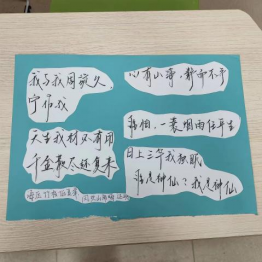 我与我周旋久
宁作我
天生我材必有用
千金散尽还复来
心有山海，静而不争
我自一蓑烟雨任平生
日上三竿我独眠
谁是神仙？我是神仙